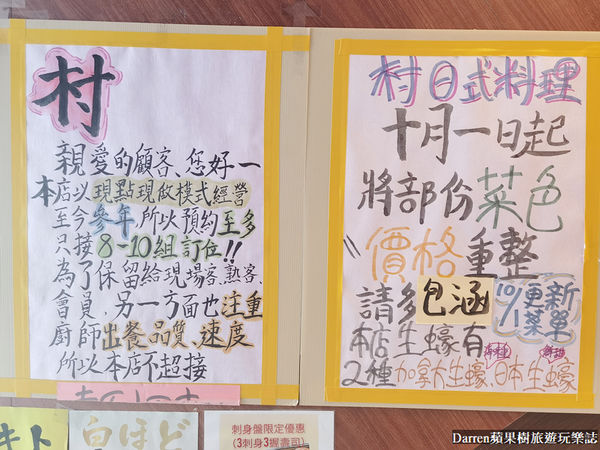 村
親愛的顧客、您好一
本店以現點現做模式經營
至今參年所以預約至多
只接8~10組訂位!!
為了保留給現場客、熟客、
會員,另一方面也注重
廚師出餐品質、速度
所以本店不超接
村日式料理
十月一日起
將部份菜色
價格重整
請多包涵
10/1更新菜單
本店生蠔有
2種加拿大生蠔、日本生蠔
白ほど
刺身盤限定優惠
(3刺身3握壽司)
Darren蘋果樹旅遊玩樂誌